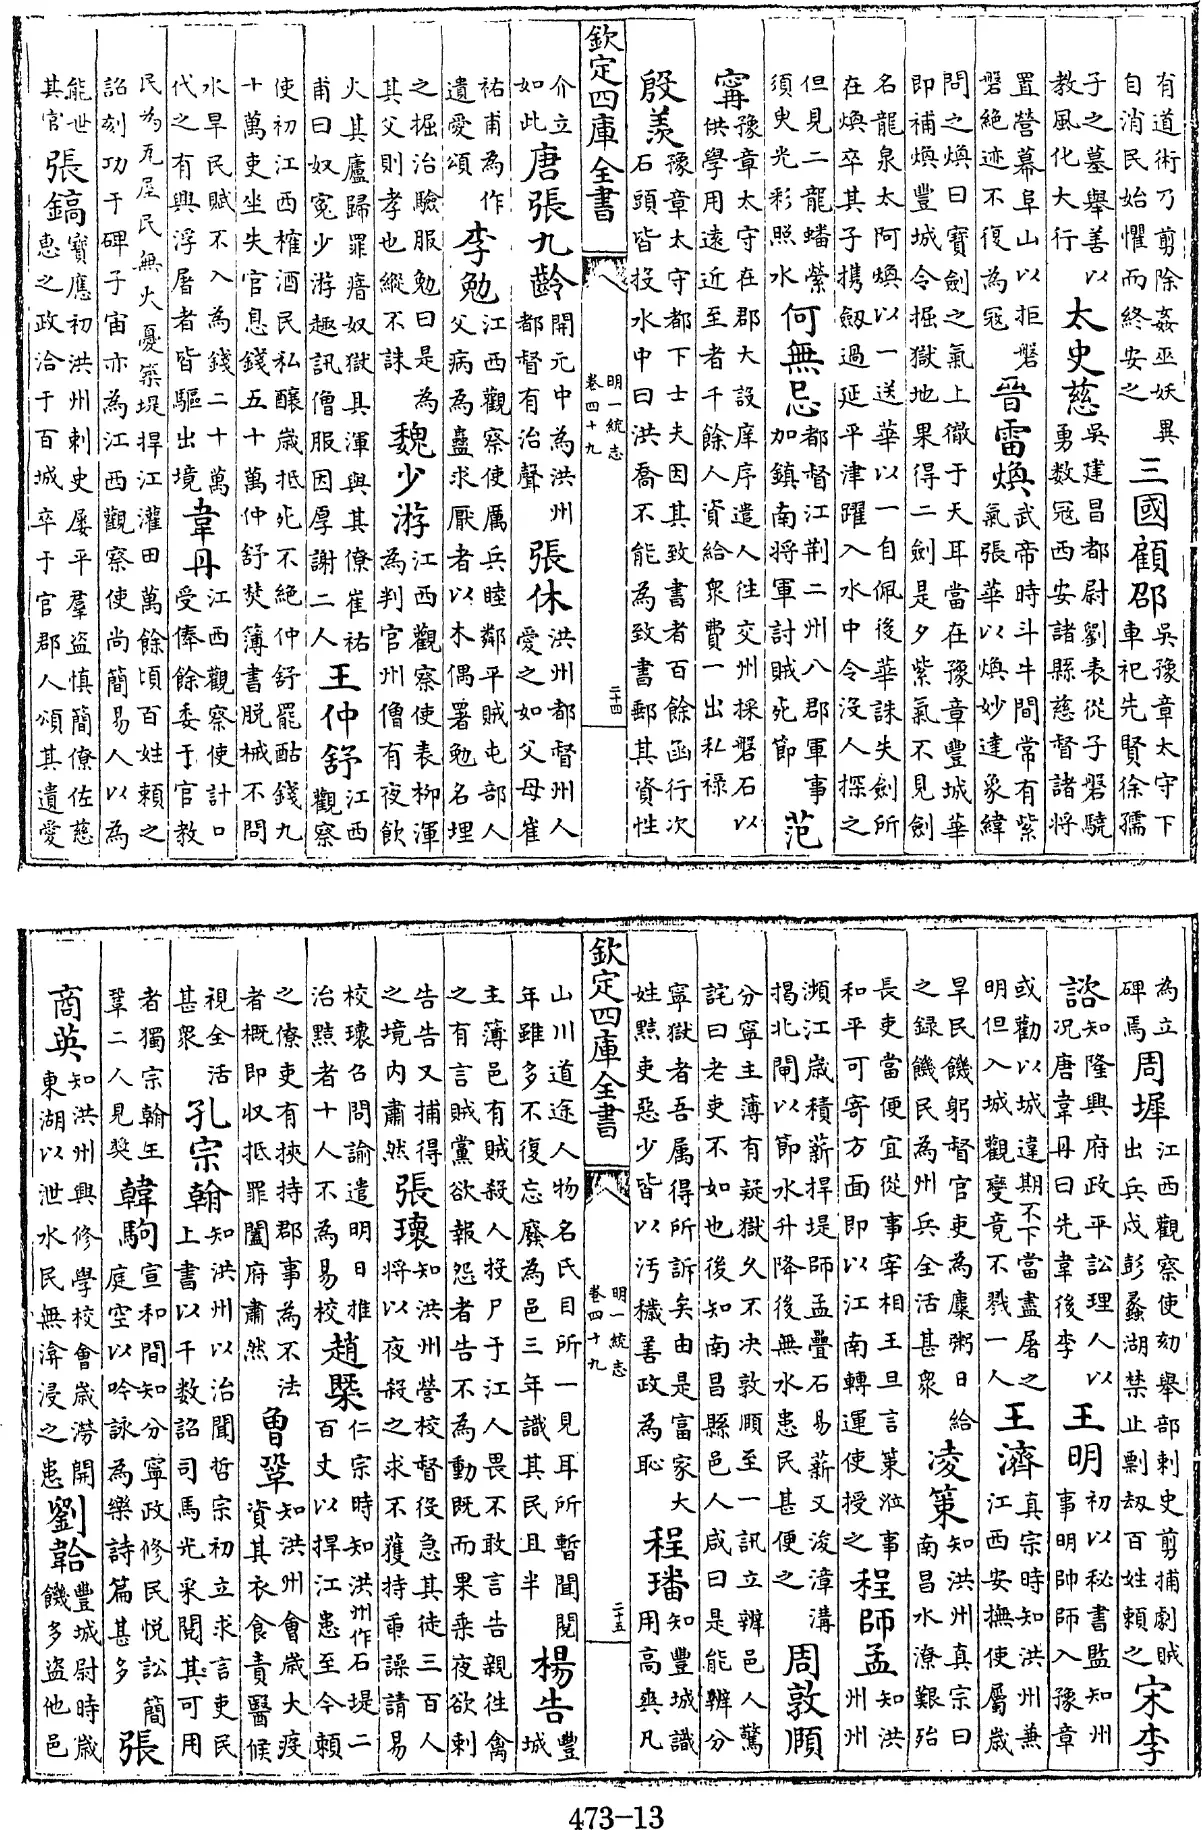 有道術乃剪除姦巫妖異
自消民始懼而終安之
三國顧邵
吳豫章太守下
車祀先賢徐孺
子之墓舉善以
教風化大行
太史慈
吳建昌都尉劉表從子磐驍
勇数冠西安諸縣慈督諸将
置營幕阜山以拒磐
磐絕迹不復為冦
晉雷煥
武帝時斗牛間常有紫
氣張華以煥妙達象緯
問之煥曰寳劍之氣上徹于天耳當在豫章豐城華
即補煥豐城令掘獄地果得二劍是夕紫氣不見劍
名龍泉太阿煥以一送華以一自佩後華誅失劍所
在煥卒其子携劔過延平津躍入水中令沒人探之
但見二龍蟠縈
須臾光彩照水
何無忌
都督江荆二州八郡軍事
加鎮南将軍討賊死節
范
寗
豫章太守在郡大設庠序遣人往交州採磐石以
供學用遠近至者千餘人資給衆費一出私禄
殷羡
豫章太守都下士夫因其致書者百餘函行次
石頭皆投水中曰洪喬不能為致書郵其資性
欽定四庫全書
明一統志
卷四十九
二十四
介立
如此
唐張九齡
開元中為洪州
都督有治聲
張休
洪州都督州人
愛之如父母崔
祐甫為作
遺愛頌
李勉
江西觀察使厲兵睦鄰平賊屯部人
父病為蠱求厭者以木偶署勉名埋
之掘治驗服勉曰是為
其父則孝也縱不誅
魏少游
江西觀察使表栁渾
為判官州僧有夜飲
火其廬歸罪瘖奴獄具渾與其僚崔祐
甫曰奴寃少游趣訊僧服因厚謝二人
王仲舒
江西
觀察
使初江西榷酒民私釀歳抵死不絕仲舒罷酤錢九
十萬吏坐失官息錢五十萬仲舒焚簿書脱械不問
水旱民賦不入為錢二十萬
代之有興浮屠者皆驅出境
韋丹
江西觀察使計口
受俸餘委于官教
民為瓦屋民無火憂築堤捍江灌田萬餘頃百姓頼之
詔刻功于碑子宙亦為江西觀察使尚簡易人以為
能世
其官
張鎬
寳應初洪州刺史屡平羣盗慎簡僚佐慈
惠之政洽于百城卒于官郡人頌其遺愛
為立
碑焉
周墀
江西觀察使劾舉部刺史剪捕劇賊
出兵戍彭蠡湖禁止剽刼百姓頼之
宋李
諮
知隆興府政平訟理人以
况唐韋丹曰先韋後李
王明
初以秘書監知州
事明帥師入豫章
或勸以城違期不下當盡屠之
明但入城觀變竟不戮一人
王濟
真宗時知洪州兼
江西安撫使屬歳
旱民饑躬督官吏為糜粥日給
之録饑民為州兵全活甚衆
凌策
知洪州真宗曰
南昌水潦艱殆
長吏當便宜從事宰相王旦言策涖事
和平可寄方面即以江南轉運使授之
程師孟
知洪
州州
瀕江歳積薪捍堤師孟疊石易薪又浚漳溝
揭北閘以節水升降後無水患民甚便之
周敦頤
分寧主薄有疑獄久不决敦頤至一訊立辨邑人驚
詫曰老吏不如也後知南昌縣邑人咸曰是能辨分
寧獄者吾属得所訴矣由是富家大
姓㸃吏惡少皆以汚穢善政為恥
程璠
知豐城識
用高爽凡
欽定四庫全書
明一統志
卷四十九
二十五
山川道途人物名氏目所一見耳所暫聞閱
年雖多不復忘廢為邑三年識其民且半
楊告
豐
城
主薄邑有賊殺人投尸于江人畏不敢言告親往禽
之有言賊黨欲報怨者告不為動既而果乗夜欲刺
告告又捕得
之境内肅然
張瓌
知洪州營校督役急其徒三百人
将以夜殺之求不獲持垂譟請易
校瓌召問諭遣明日推
治㸃者十人不為易校
趙槩
仁宗時知洪州作石堤二
百丈以捍江患至今頼
之僚吏有挾持郡事為不法
者概即収抵罪闔府肅然
曾鞏
知洪州會歳大疫
資其衣食責醫候
視全活
甚衆
孔宗翰
知洪州以治聞哲宗初立求言吏民
上書以千数詔司馬光采閱其可用
者獨宗翰王
鞏二人見奨
韓駒
宣和間知分寧政修民悦訟簡
庭空以吟詠為樂詩篇甚多
張
商英
知洪州興修學校會歳澇開
東湖以泄水民無渰浸之患
劉韐
豐城尉時歳
饑多盗他邑
473-13